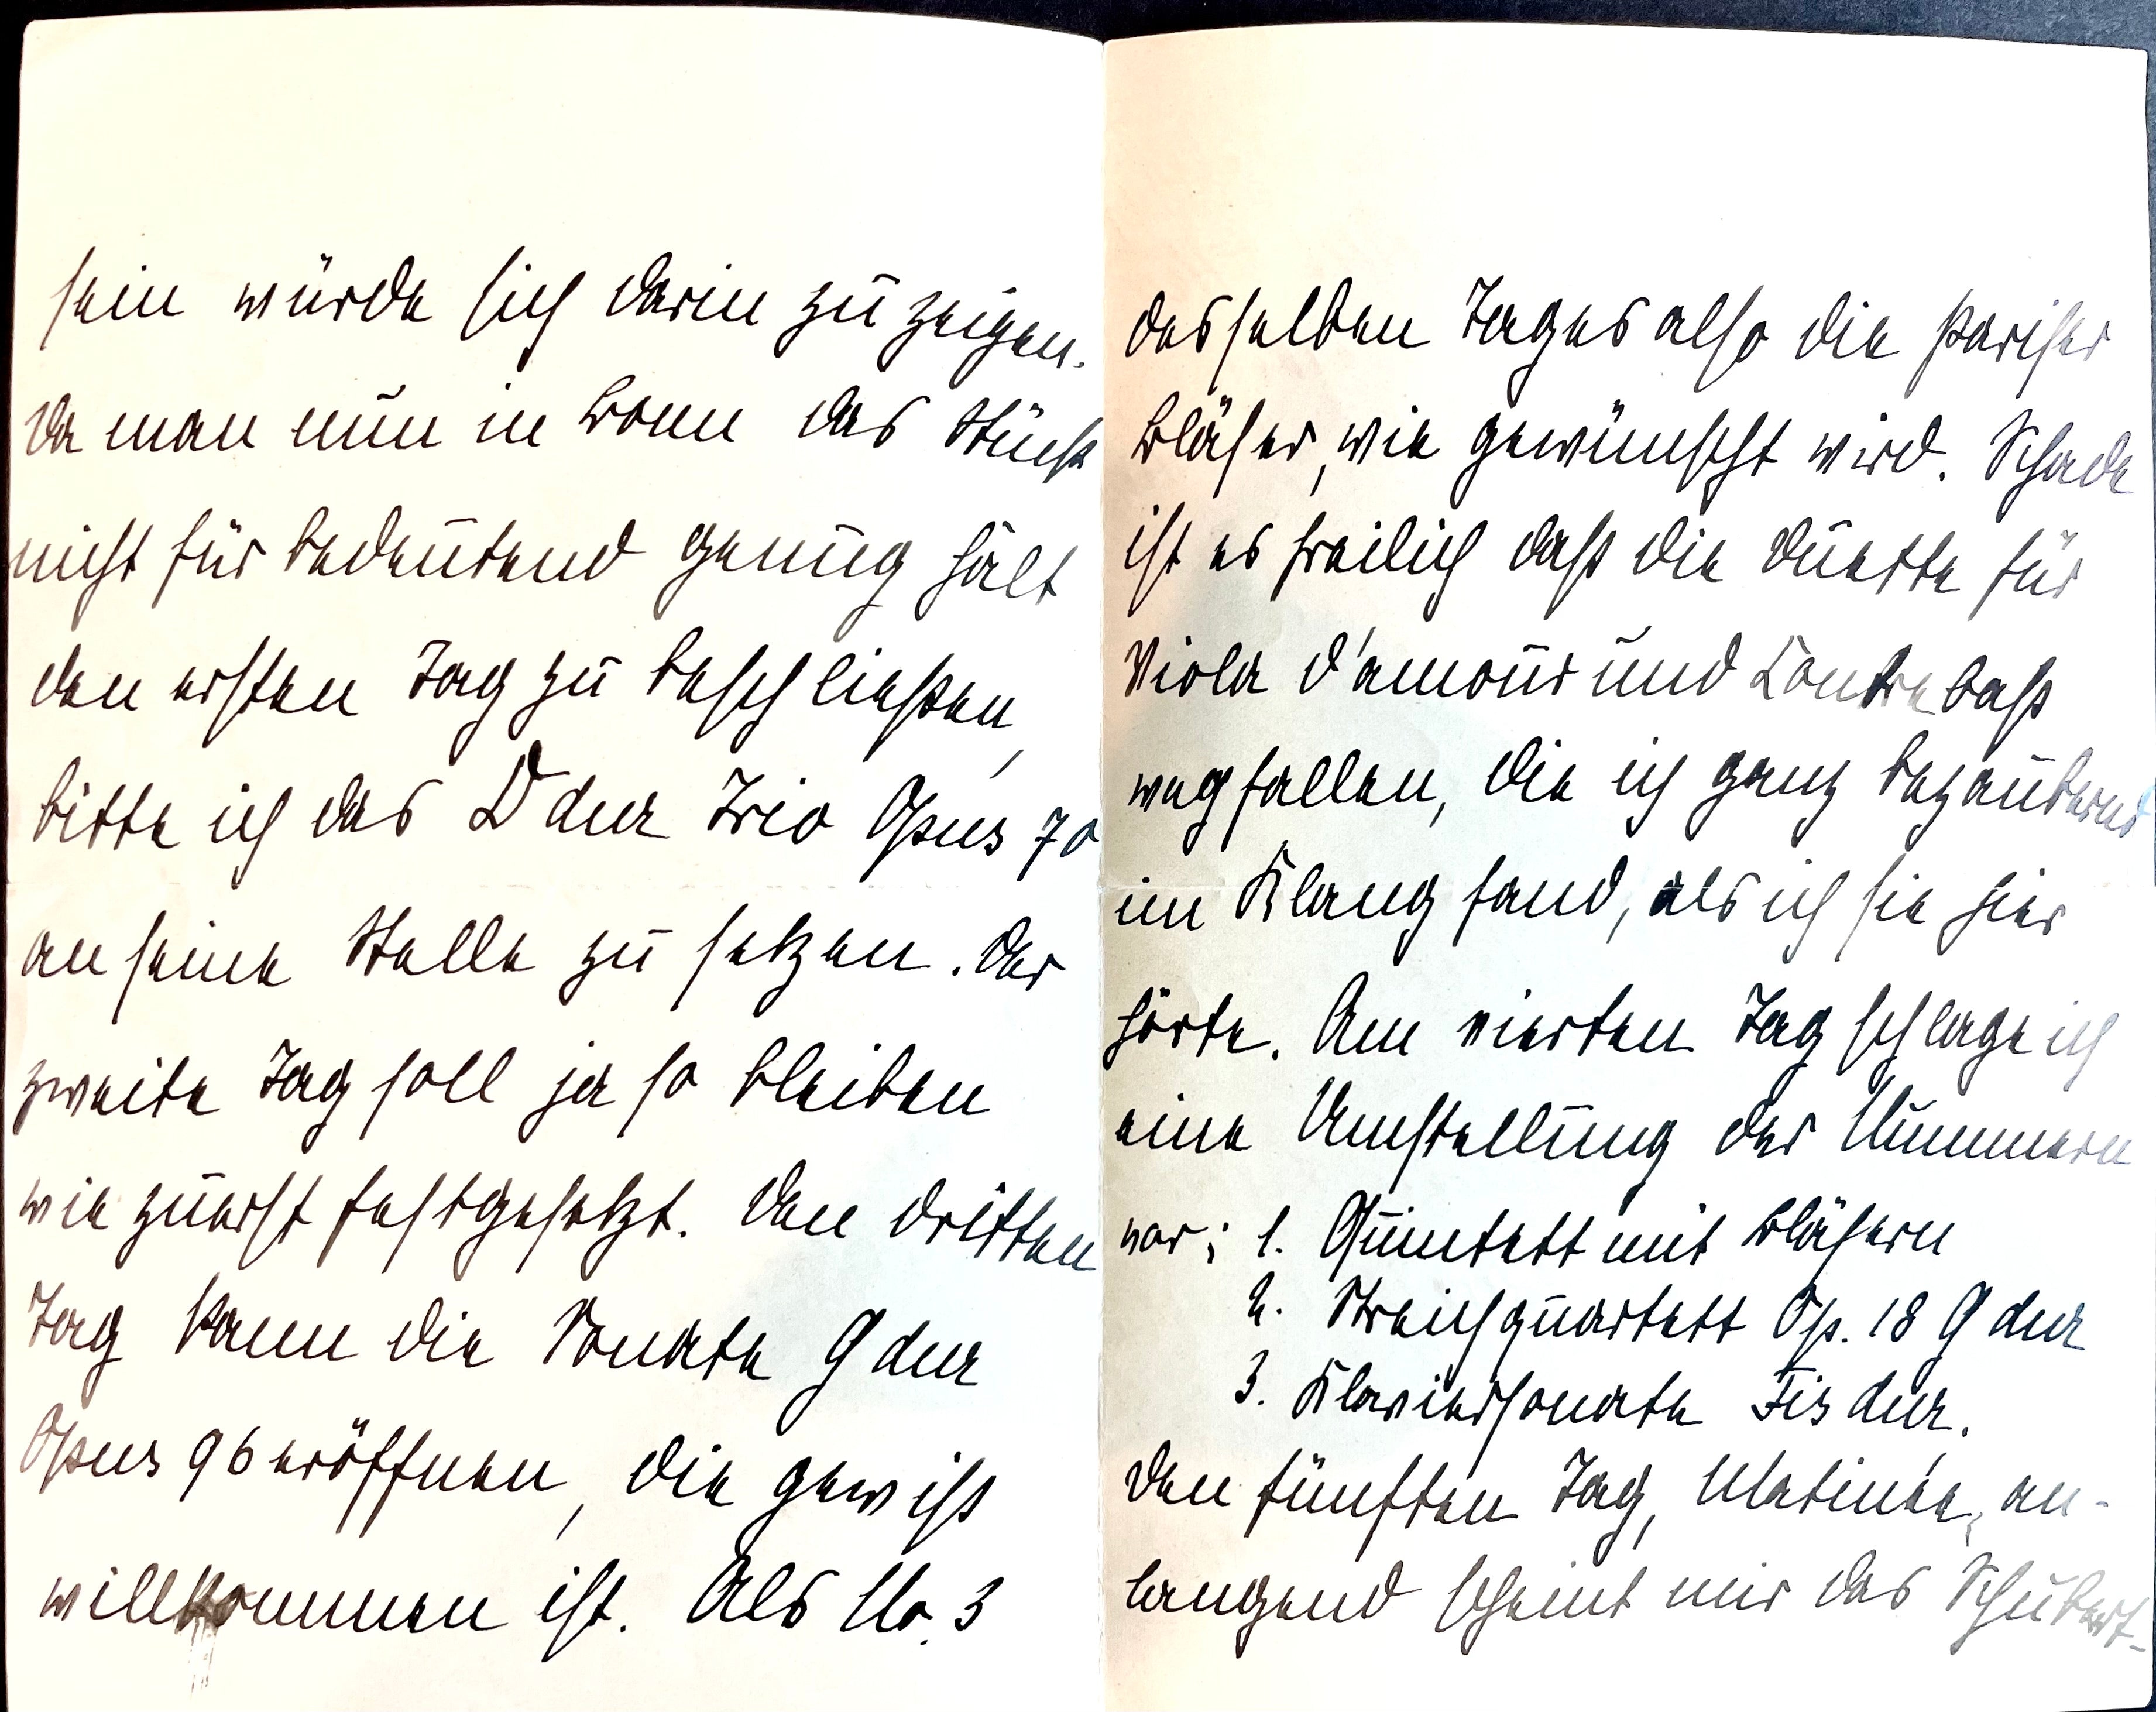 sein würde sich darin zu zeigen.
Da man nun in Bonn das Stück
nicht für bedeutend genug hält
den ersten Tag zu beschließen,
bitte ich das D dur Trio Opus 70
an seine Stelle zu setzen. Der
zweite Tag soll ja so bleiben
wie zuerst festgesetzt. Den dritten
Tag kann die Sonate G dur
Opus 96 eröffnen, die gewiß
willkommen ist. Als No. 3
desselben Tages also die Pariser
Bläser, wie gewünscht wird. Schade
ist es freilich daß die Duette für
Viola d'amour und Contrebaß
wegfallen, die ich ganz bezaubernd
im Klang fand, als ich sie hier
hörte. Am vierten Tag schlage ich
eine Umstellung der Nummern
vor: 1. Quintett mit Bläsern
2. Streichquartett Op. 18 G dur
3. Klaviersonate Fis dur.
Den fünften Tag, Matinée, an-
langend scheint mir das Schubert-